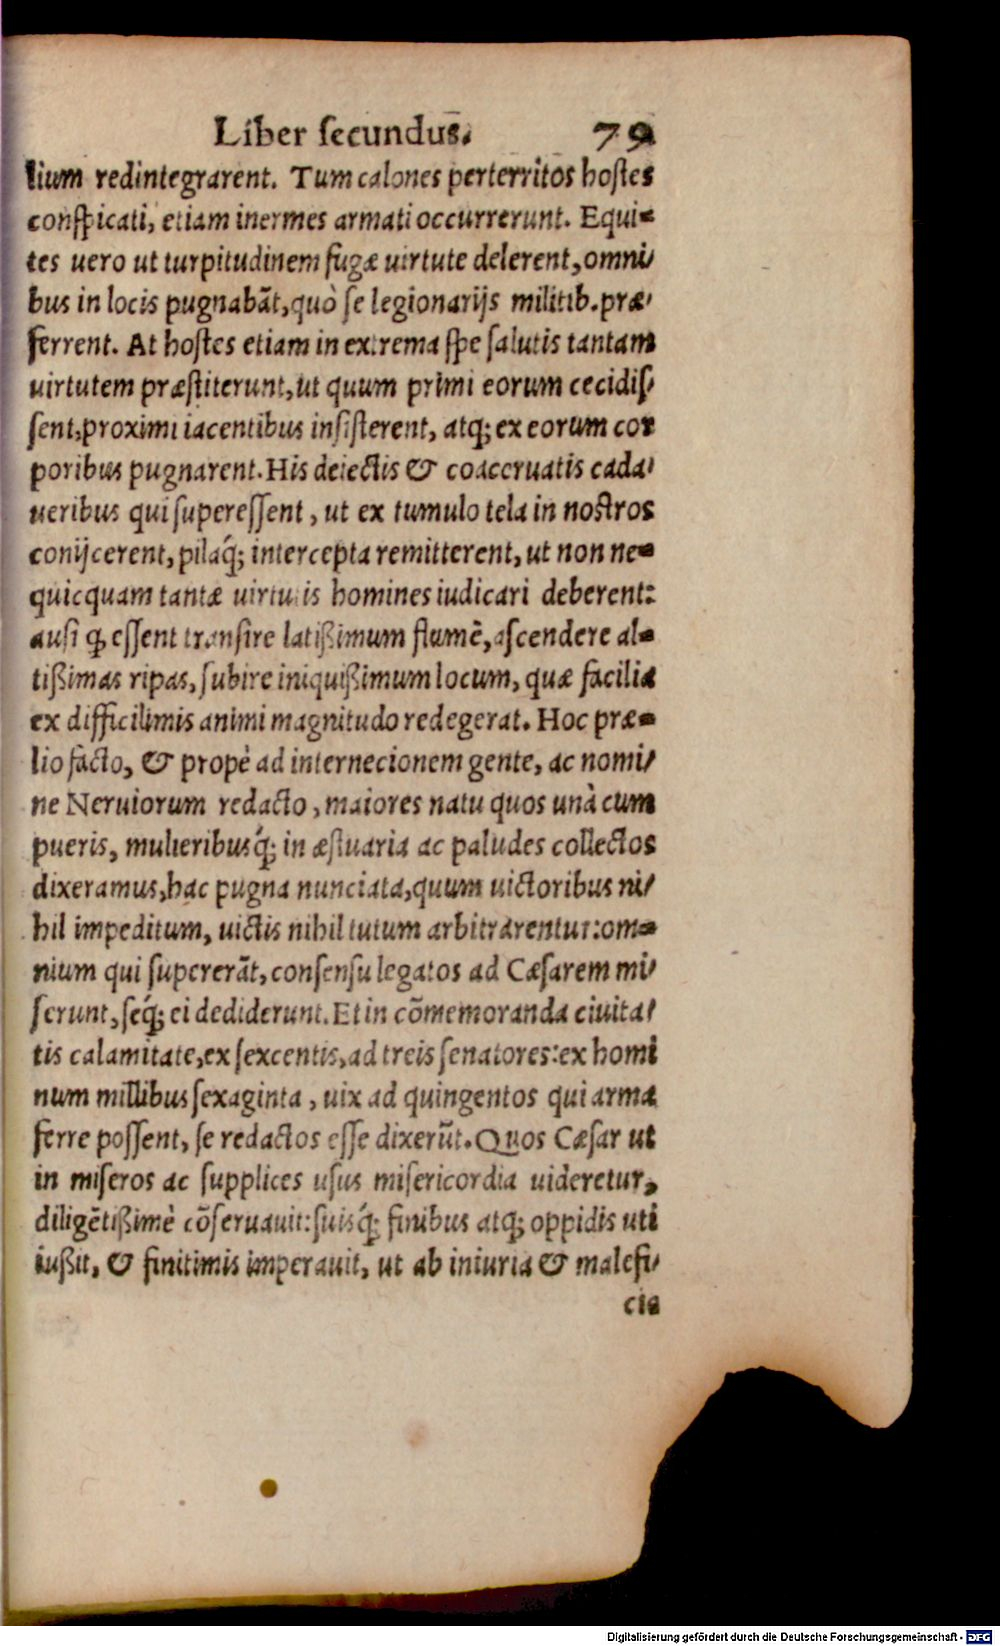 Liber ſecundus. 79
lium redintegrarent. Tum calones perterritos hoſtes
conſpicati, etiam inermes armati occurrerunt. Equi-
tes uero ut turpitudinem fugæ uirtute delerent, omni/
bus in locis pugnabãt, quò ſe legionarijs militib. præ/
ferrent. At hoſtes etiam in extrema ſpe ſalutis tantam
uirtutem præſtiterunt, ut quum primi eorum cecidiſ/
ſent, proximi iacentibus inſiſterent, atq; ex eorum cor
poribus pugnarent. His deiectis & coaceruatis cada/
ueribus qui ſupereſſent, ut ex tumulo tela in noſtros
conijcerent, pilaq́; intercepta remitterent, ut non ne-
quicquam tantæ uirtutis homines iudicari deberent:
auſi q̃ eſſent tranſire latißimum flumẽ, aſcendere al-
tißimas ripas, ſubire iniquißimum locum, quæ facilia
ex difficilimis animi magnitudo redegerat. Hoc præ-
lio facto, & propè ad internecionem gente, ac nomi/
ne Neruiorum redacto, maiores natu quos unà cum
pueris, mulieribusq́; in æſtuaria ac paludes collectos
dixeramus, hac pugna nunciata, quum uictoribus ni/
hil impeditum, uictis nihil tutum arbitrarentur: om-
nium qui ſupererãt, conſenſu legatos ad Cæſarem mi/
ſerunt, ſeq́; ei dediderunt. Et in cõmemoranda ciuita/
tis calamitate, ex ſexcentis, ad treis ſenatores: ex homi
num millibus ſexaginta, uix ad quingentos qui arma
ferre poſſent, ſe redactos eſſe dixerũt. Quos Cæſar ut
in miſeros ac ſupplices uſus miſericordia uideretur,
diligẽtißimè cõſeruauit: ſuisq́; finibus atq; oppidis uti
iußit, & finitimis imperauit, ut ab iniuria & malefi/
cis
Digitalisierung gefördert durch die Deutsche Forschungsgemeinschaft - DFG